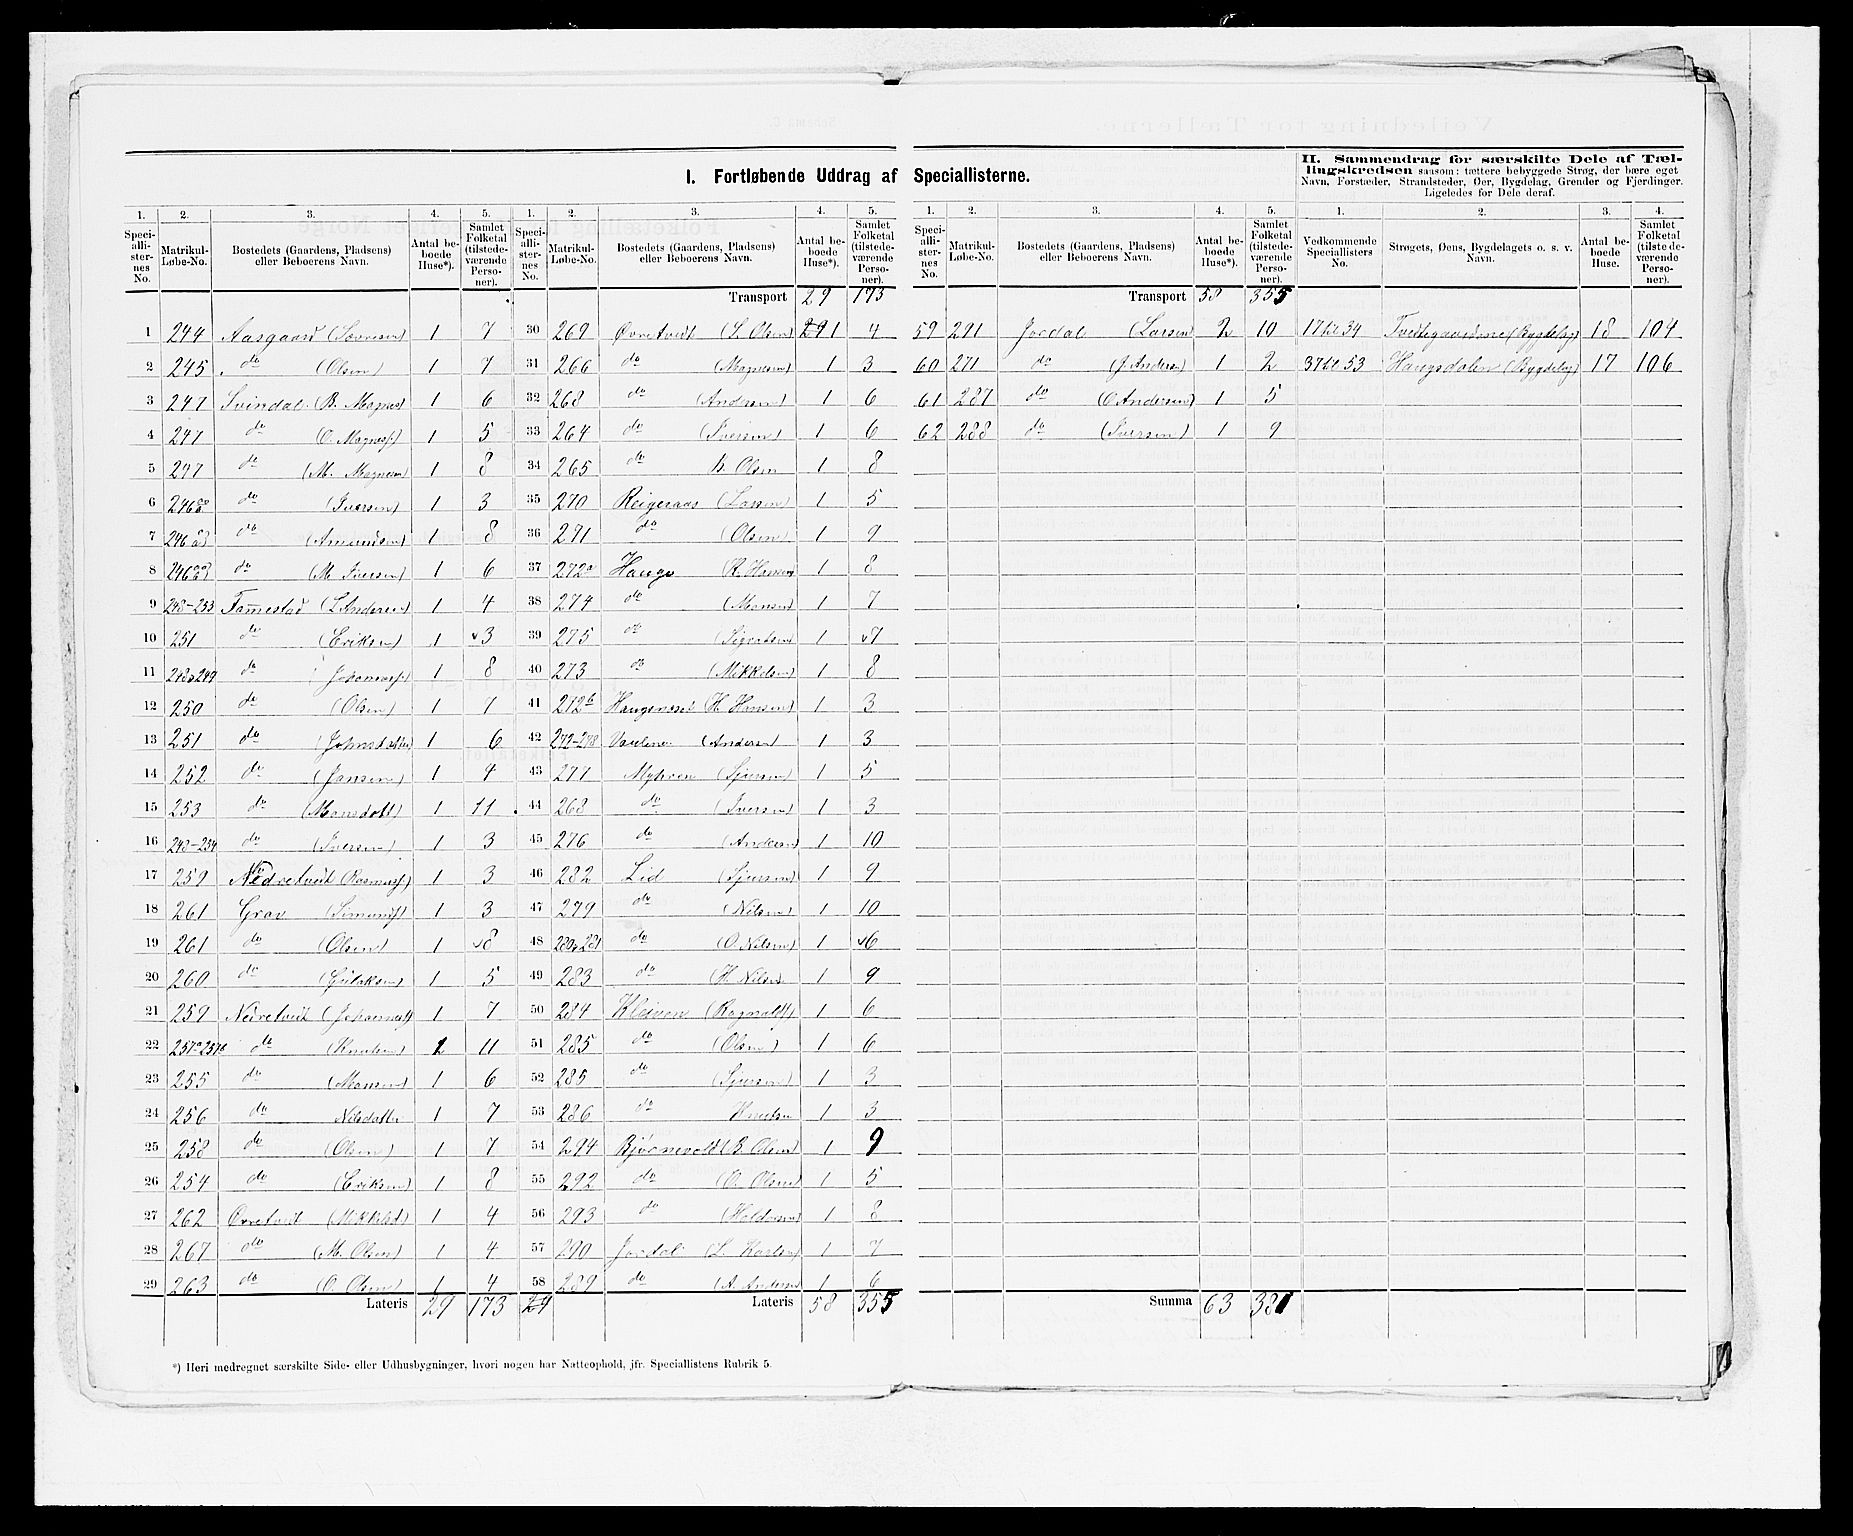 I. Fortløbende Uddrag af Speciallisterne.
II. Sammendrag for særskilte Dele af Tællingskredsen saasom: tættere bebyggede Strøg, der bære eget
Navn, Forstæder, Strandsteder, Øer, Bygdelag, Grender og Fjerdinger.
Ligeledes for Dele deraf.
1. 2. 3. 4. 5.
Speciallisternes No. Matrikul-Løbe-No. Bostedets (Gaardens, Pladsens) eller Beboerens Navn. Antal beboede Huse*). Samlet Folketal (tilstedeværende Personer).
1 244 Aasgaard 1 7
2 245 do (Olsen) 1 7
3 247 Svindal (B. Magnes) 1 6
4 247 do (O. Magnesf) 1 5
5 247 do (M. Magnesen) 1 8
6 246 do (Iversen) 1 3
7 246 do (Amundsen) 1 8
8 246 do (M Iversen) 1 6
9 248-253 Tamestad (L Andersen) 1 4
10 251 do (Eriksen) 1 3
11 248 249 do 1 8
12 250 do (Olsen) 1 7
13 251 do (Johnsdatter) 1 6
14 252 do (Jansen) 1 4
15 253 do (Monsdatt) 1 11
16 248-254 do (Iversen) 1 3
17 259 Nedretveit (Rasmusf) 1 3
18 261 Grav (Simensf) 1 3
19 261 do (Olsen) 1 8
20 260 do 1 5
21 259 Nedretveit 1 7
22 257a-257b do (Knudsen) 2 11
23 255 do (Monsen) 1 6
24 256 do Nilsdatter 1 7
25 258 do (Olsen) 1 7
26 254 do (Eriksen) 1 8
27 262 Øvretveit 1 4
28 267 do (M. Olsen) 1 4
29 263 do (O. Olsen) 1 4
Lateris 29 173
1. 2. 3. 4. 5.
Speciallisternes No. Matrikul-Løbe-No. Bostedets (Gaardens, Pladsens) eller Beboerens Navn. Antal beboede Huse*). Samlet Folketal (tilstedeværende Personer).
Transport 29 173
30 269 Øvretveit (L. Olsen) 1 4
31 266 do (Magnesen) 1 3
32 268 do (Andersen) 1 6
33 264 do (Iversen) 1 6
34 265 do B. Olsen 1 8
35 270 Reigeraas (Larsen) 1 5
36 271 do (Olsen) 1 9
37 272a Hauge (R. Hansen) 1 8
38 274 do (Monsen) 1 7
39 275 do 1 7
40 273 do (Mikkelsen) 1 8
41 272b Haugeneset (H. Hansen) 1 3
42 Vaulene (Andersen) 1 3
43 277 Myhren (Sjursen) 1 5
44 268 do (Iversen) 1 3
45 276 do (Andersen) 1 10
46 282 Lid (Sjursen) 1 9
47 279 do (Nilsen) 1 10
48 280 281 do (O. Nilsen) 1 6
49 283 do (H. Nilsen) 1 9
50 284 Kleiven (Ragnaldt) 1 6
51 285 do (Olsen) 1 6
52 285 do (Sjursen) 1 3
53 286 do Knudsen 1 3
54 294 Bjørnevoldt (B. Olsen) 1 9
55 292 do (O. Olsen) 1 5
56 293 do (Haldorsen) 1 8
57 290 Jordal (L. Karlsen) 1 7
58 289 do (A. Andersen) 1 6
Lateris 58 355
1. 2. 3. 4. 5.
Speciallisternes No. Matrikul-Løbe-No. Bostedets (Gaardens, Pladsens) eller Beboerens Navn. Antal beboede Huse*). Samlet Folketal (tilstedeværende Personer).
Transport 58 355
59 291 Jordal (Larsen) 2 10
60 271 do (J. Andersen) 1 2
61 287 do (O Andersen) 1 5
62 288 do (Iversen) 1 9
Summa 63 381
1. 2. 3. 4.
Vedkommende Speciallisters No. Strøgets, Øens, Bygdelagets o. s. v. Navn. Antal beboede Huse. Samlet Folketal (tilstedeværende Personer).
17 til 34 Tveitegaardene (Bygdelag) 18 104
37 til 53 Haugsdalen (Bygdelag) 17 106
*) Heri medregnet særskilte Side- eller Udhusbygninger, hvori nogen har Natteophold, jfr. Speciallistens Rubrik 5.